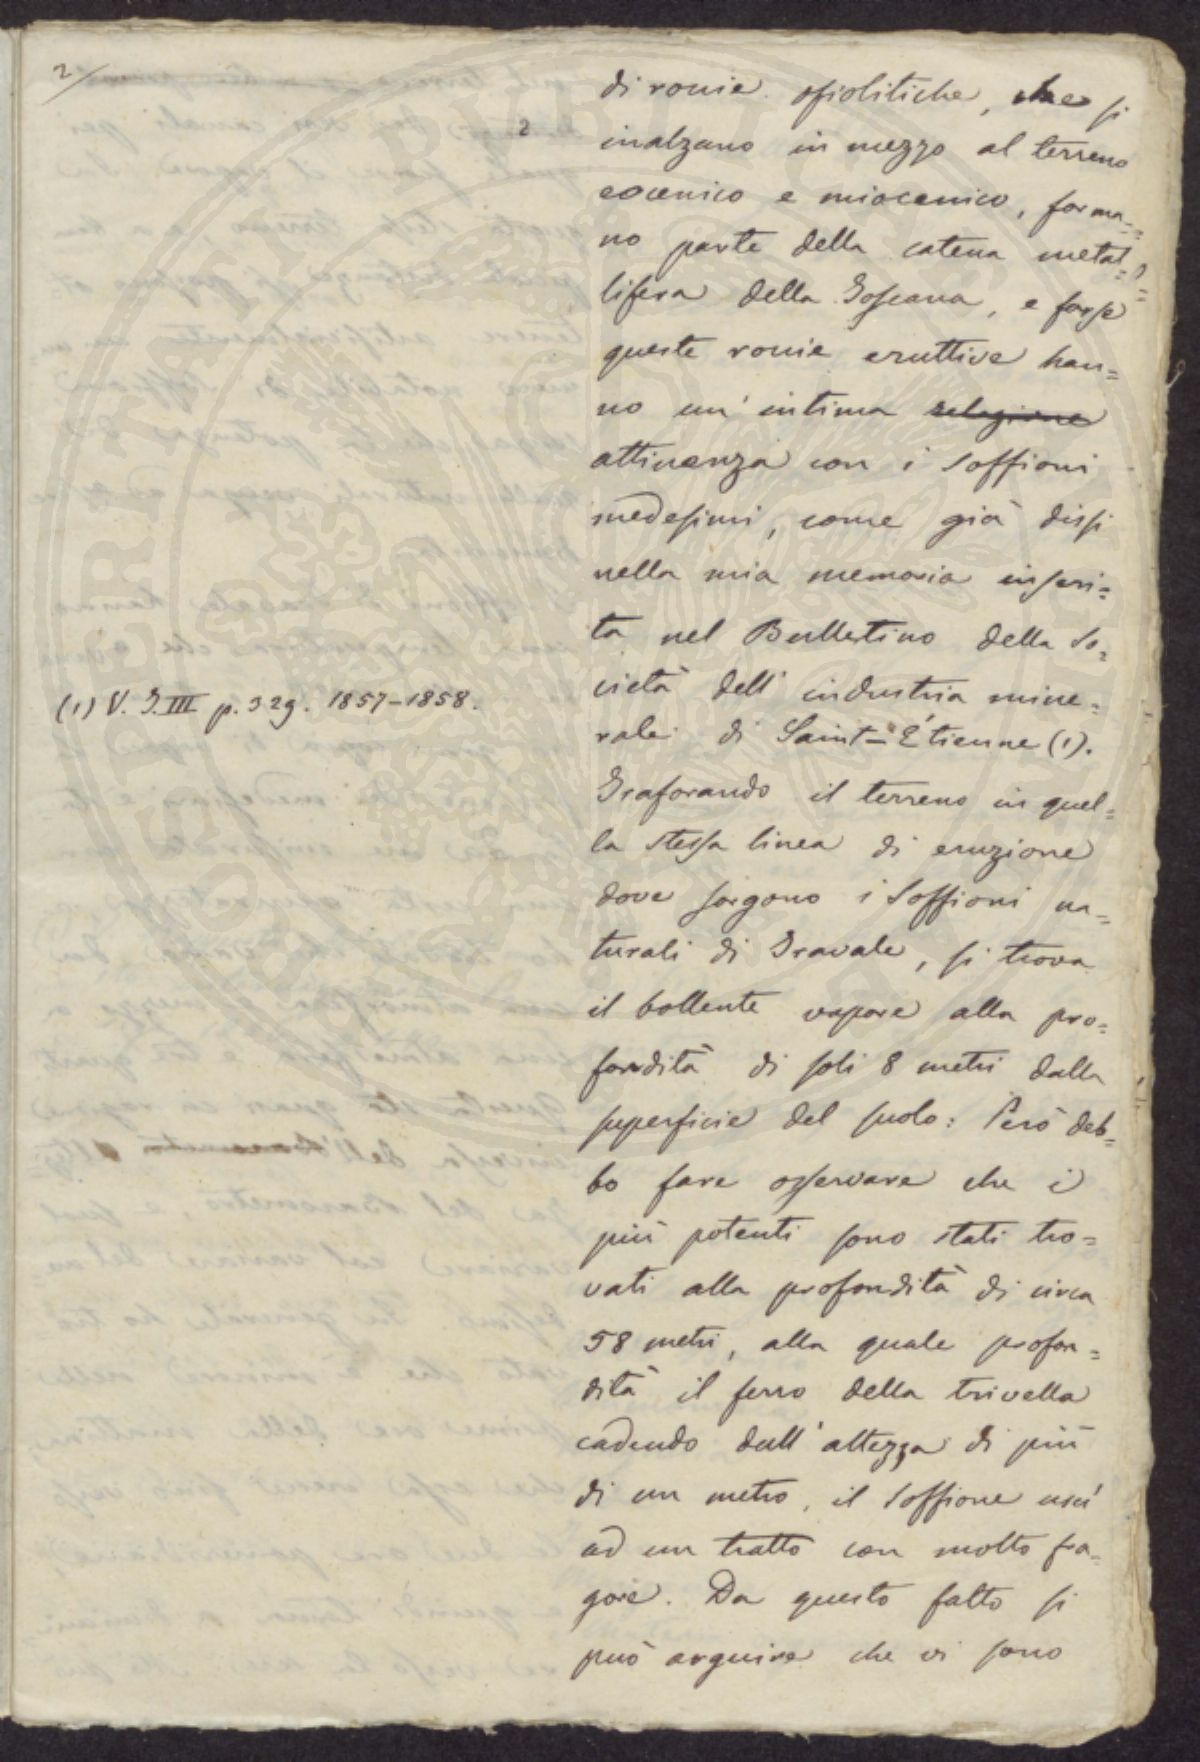 2/
2
di rocce ofiolitiche, che si
inalzano in mezzo al terreno
eocenico e miocenico, forma=
no parte della catena metal=
lifera della Toscana, e forse
queste rocce eruttive han=
no un' intima relazione
attinenza con i Soffioni
medesimi, come già dissi
nella mia memoria inseri=
ta nel Bullettino della So=
cietà dell' industria mine=
rale di Saint-Étienne (1).
(1) V. T. III p. 329. 1857-1858.
Traforando il terreno in quel=
la stessa linea di eruzione
dove sorgono i Soffioni na=
turali di Travale, si trova
il bollente vapore alla pro=
fondità di soli 8 metri dalla
superficie del suolo: Però deb=
bo fare osservare che i
più potenti sono stati tro=
vati alla profondità di circa
58 metri, alla quale profon=
dità il ferro della trivella
cadendo dall' altezza di più
di un metro, il Soffione uscì
ad un tratto con molto fra=
gore. Da questo fatto si
può arguire che vi sono